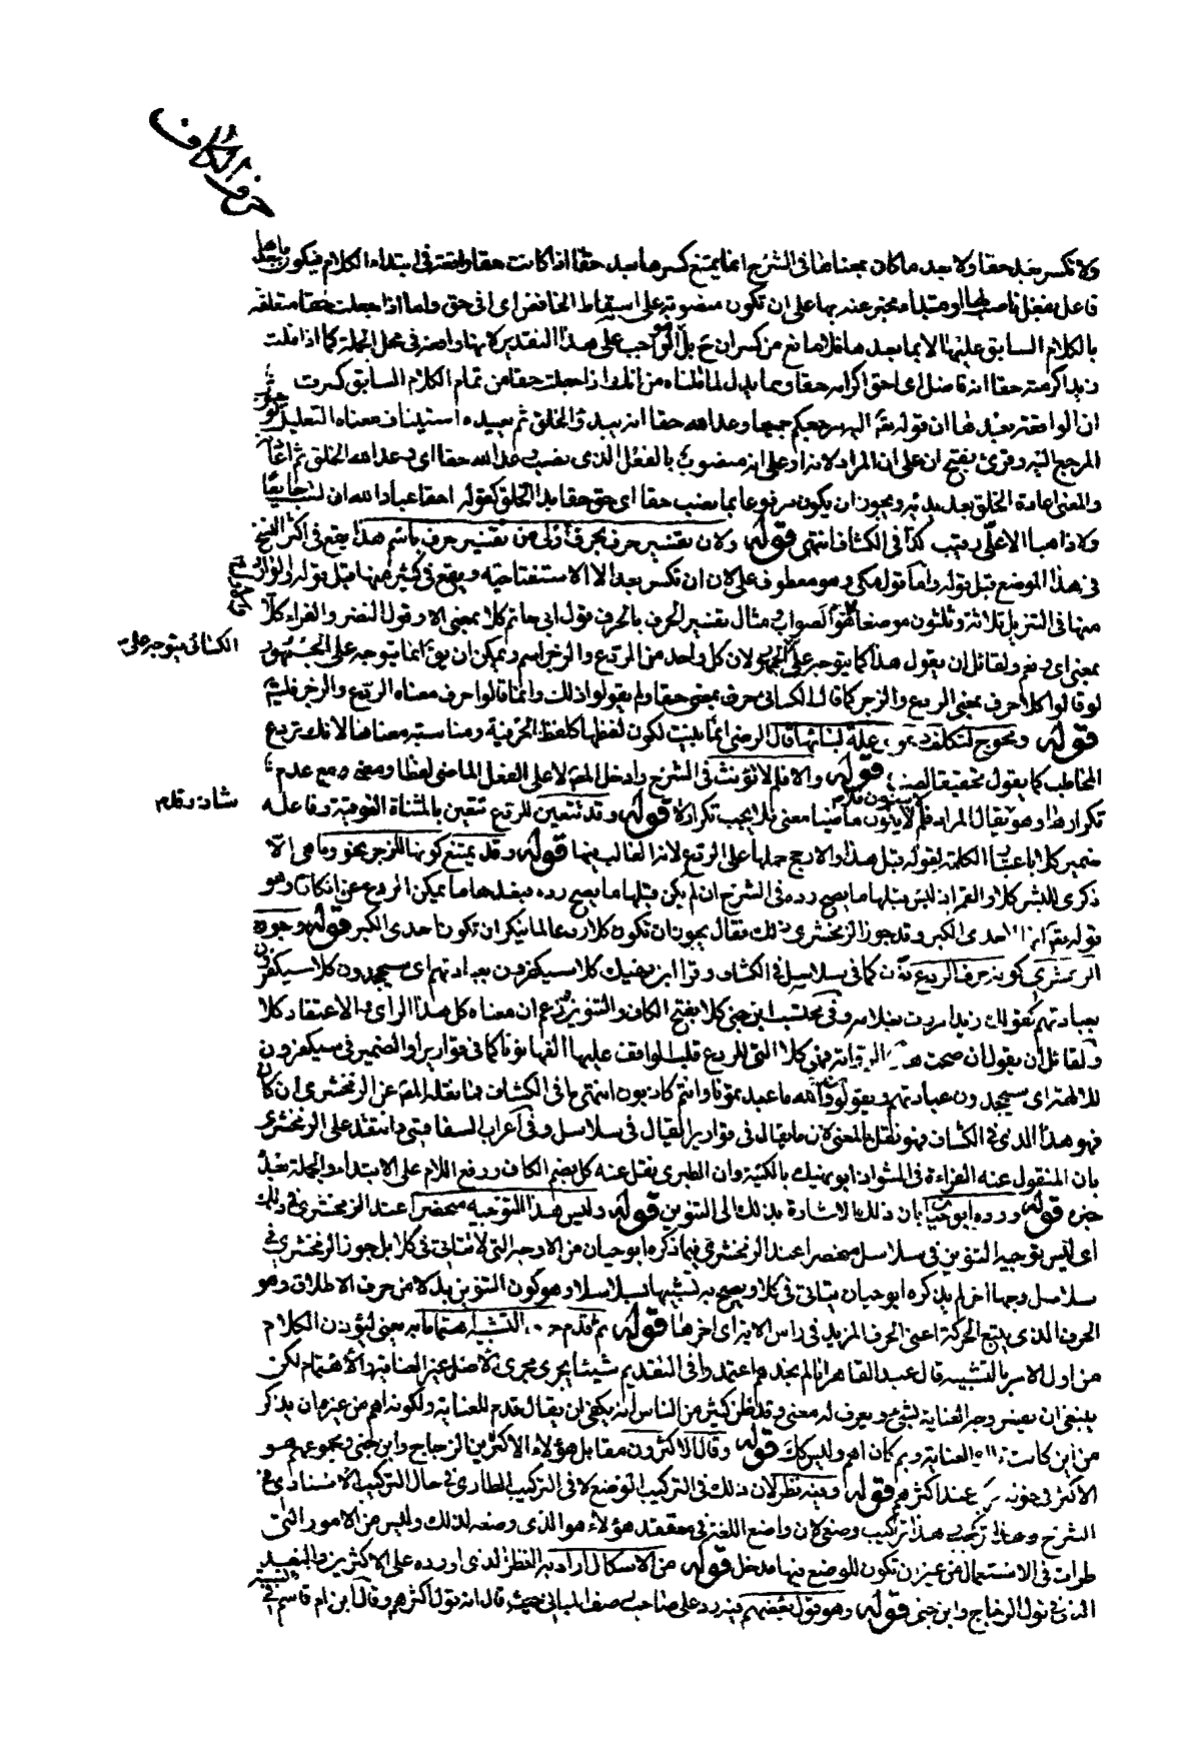 حرف الكاف
ولا تكسر بعد حقا ولا بعد ما كان بمعناها في الشرح انما يمتنع كسرها بعد حقا اذا كانت حقا واقعة في ابتداء الكلام فيكون ما بعدها
فاعل بفعل ناصب لها او مبتداء مخبر عنه بها على ان تكون منصوبة على اسقاط الخافض اى في حق واما اذا جعلت حقا متعلقة
بالكلام السابق عليها لا بما بعدها فلا مانع من كسر ان ح بل هو الواجب على هذا التقدير لانها واقعة في محل الجملة كما اذا قلت
زيد اكرمته حقا انه فاضل اى احق اكرامه حقا ومما يدل لما قلناه من انه اذا جعلت حقا من تمام الكلام السابق كسرت
ان الواقعة بعدها ان قوله تعالى اليه مرجعكم جميعا وعد الله حقا انه يبدؤ الخلق ثم يعيده استيناف معناه التعليل لوجوب
المرجع اليه وقرئ بفتح ان على ان المراد لانه او على انه منصوب بالفعل الذى نصب وعد الله حقا اى وعد الله الخلق ثم اعادته
والمعنى اعادة الخلق بعد بدئه ويجوز ان يكون مرفوعا بما نصب حقا اى حق حقا بدا الخلق كقوله احقا عباد الله ان لست جائيا
ولا ذاهبا الا علي رقيب كذا في الكشاف انتهى قوله ولان تفسير حرف بحرف اولى من تفسير حرف باسم هذا يقع في اكثر النسخ
في هذا الموضع قبل قوله واما قول مكي وهو معطوف على لان ان تكسر بعد الا الاستفتاحية ويقع في كثير منها قبل قوله والوارد
منها في التنزيل ثلاثة وثلثون موضعا هو الصواب مثال تفسير الحرف بالحرف قول ابى حاتم كلا بمعنى الا وقول النضر والفراء كلا
بمعنى اى ونعم ولقائل ان يقول هذا كما يتوجه على الجمهور لان كل واحد من الردع والزجر اسم ويمكن ان يق انما يتوجه على الجمهور
الكسائى يتوجه على
لو قالوا كلا حرف بمعنى الردع والزجر كما قال الكسائى حرف بمعنى حقا ولم يقولوا ذلك وانما قالوا حرف معناه الردع والزجر فليتم
قوله ويحوج لتكلف دعوى علة لبنائها قال الرضى انما بنيت لكون لفظها كلفظ الحرفية ومناسبة معناها لانك تردع
المخاطب كما يقول تحقيقا لضده قوله والا فلم لا نونت في الشرح وادخل المص لا على الفعل الماضى لفظا ومعنى ومع عدم
تكرارها وهو يقال المراد فلم لا ينون فلا يكون ماضيا معنى فلا يجب تكرار لا قوله وقد تتعين للردع تتعين بالمثناة الفوقية وفاعله
ضمير كلا باعتبار الكلمة لقوله قبل هذا والارجح حملها على الردع لانه الغالب فيها قوله وقد يمتنع كونها للزجر نحو وما هى الا
ذكرى للبشر كلا والقمر اذ ليس قبلها ما يصح رده في الشرح ان لم يكن قبلها ما يصح رده فبعدها ما يمكن الردع عن انكاره وهو
قوله تعالى انها لاحدى الكبر وقد جوز الزمخشرى ذلك فقال يجوز ان تكون كلا ردعا لما ينكر ان تكون احدى الكبر قوله وجوز
الزمخشرى كونه حرف الردع نون كما في سلاسل في الكشاف وقرا ابن نهيك كلا سيكفرون بعبادتهم اى سيجحدون كلا سيكفرون
بعبادتهم كقولك زيدا مررت بغلامه وفى محتسب ابن جنى كلا بفتح الكاف والتنوين وزعم ان معناه كل هذا الراى والاعتقاد كلا
ولقائل ان يقول ان صحت هذه الرواية فهى كلا التى للردع قلب الواقف عليها الفها نونا كما في قواريرا والضمير في سيكفرون
للالهة اى سيجحدون عبادتهم ويقولون والله ما عبدتمونا وانتم كاذبون انتهى ما في الكشاف فما نقله المص عن الزمخشرى ان كان
فهو هذا الذى في الكشاف فهو نقل بالمعنى لان ما يقال في قوارير يقال في سلاسل وفى اعراب السفاقسى وانتقد على الزمخشرى
بان المنقول عنه القراءة في الشواذ ابو نهيك بالكنية وان الطبرى نقل عنه كل بضم الكاف ورفع اللام على الابتداء والجملة بعده
خبره قوله ورده ابو حيان بان ذلك الاشارة بذلك الى التنوين قوله وليس هذا التوجيه منحصرا عند الزمخشرى في ذلك
اى ليس توجيه التنوين في سلاسل منحصرا عند الزمخشرى فيما ذكره ابو حيان من الاوجه التى لا تتاتى في كلا بل جوز الزمخشرى في
سلاسل وجها اخر لم يذكره ابو حيان يتاتى في كلا ويصح به تشبيهها بسلاسلا وهو كون التنوين بدلا من حرف الاطلاق وهو
الحرف الذى يتبع الحركة اعنى الحرف المزيد في راس الاية اى اخرها قوله ثم قدم حرف التشبيه اهتماما به يعنى ليؤذن الكلام
من اول الامر بالتشبيه قال عبد القاهر انا لم نجدهم اعتمدوا في التقديم شيئا يجرى مجرى الاصل غير العناية والاهتمام لكن
ينبغى ان يفسر وجه العناية بشئ ويعرف له معنى وقد ظن كثير من الناس انه يكفى ان يقال قدم للعناية ولكونه اهم من غير ان يذكر
من اين كانت تلك العناية وبم كان اهم وليس كك قوله وقال الاكثرون مقابل هؤلاء الاكثرين الزجاج وابن جنى ومجموعهم هو
الاكثر في نحو عند اكثرهم قوله وفيه نظر لان ذلك في التركيب الوضعى لا في التركيب الطارى في حال التركيب الاسنادى في
الشرح وهذا التركيب هذا تركيب وضعى لان واضع اللغة في معتقد هؤلاء هو الذى وضعه لذلك وليس من الامور التى
طرات في الاستعمال من غير ان تكون للوضع فيها مدخل قوله من الاشكال اراد به النظر الذى اورده على الاكثرين والبعد
الذى في قول الزجاج وابن جنى قوله وهو قول بعضهم فيه رد على صاحب رصف المبانى حيث قال انه قول اكثرهم وقال ابن ام قاسم في